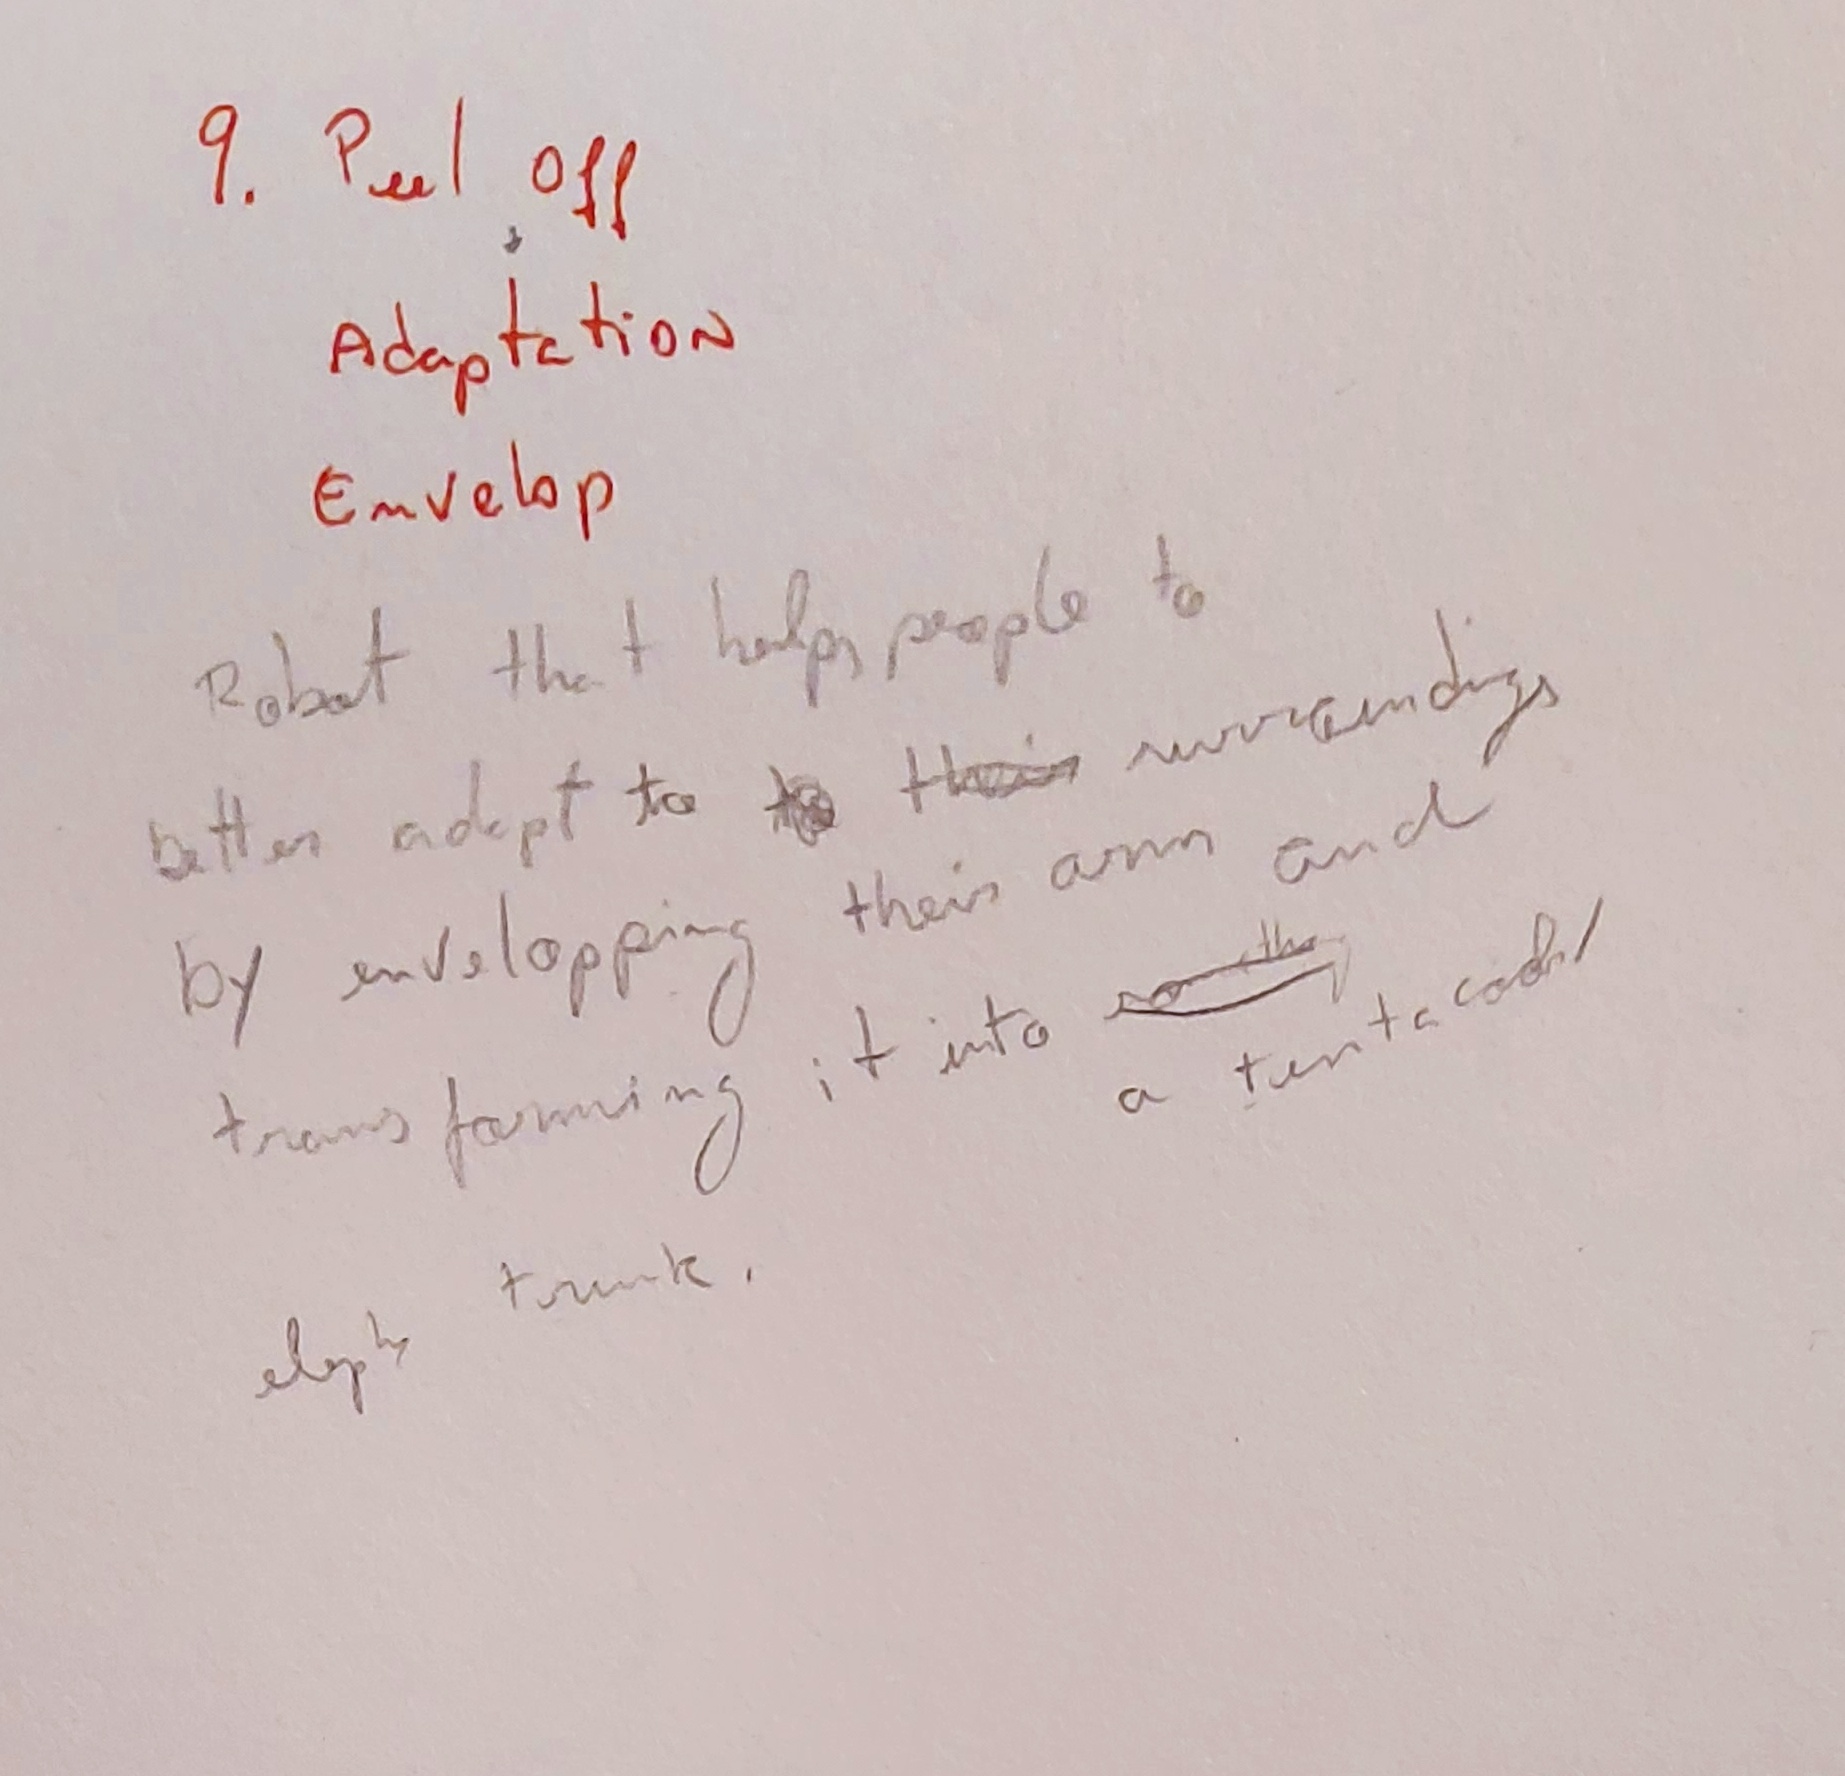 9. Peel off
Adaptation
Envelop
Robot that helps people to
better adapt to their surroundings
by envelopping their arm and
transforming it into
a
trunk.
eleph